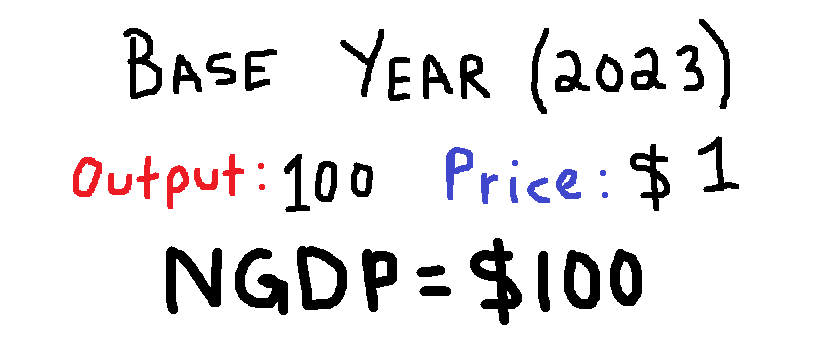 BASE YEAR (2023)
Output: 100 Price: $ 1
NGDP = $100